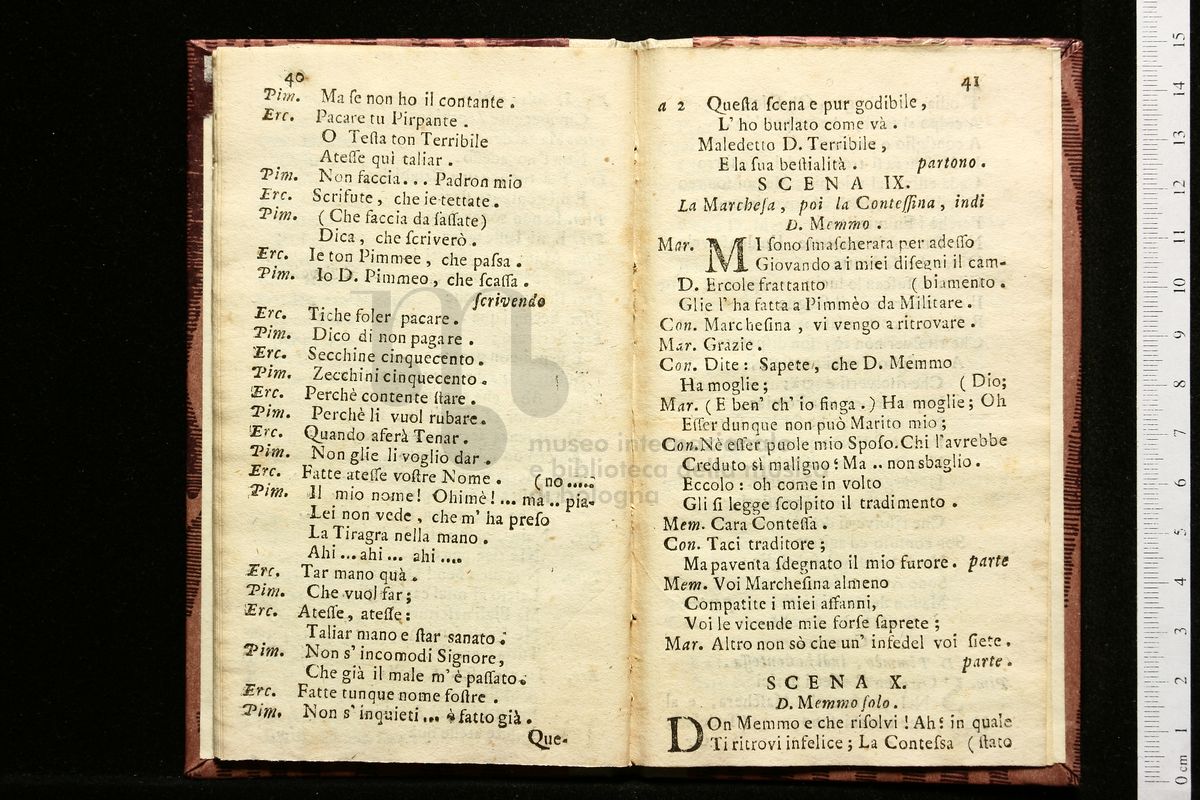 40
Pim. Ma ſe non ho il contante .
Erc. Pacare tu Pirpante .
O Teſta ton Terribile
Ateſſe quì taliar .
Pim. Non faccia... Padron mio
Erc. Scrifute, che ie tettate .
Pim. (Che faccia da ſaſſate)
Dica, che ſcriverò .
Erc. Ie ton Pimmee, che paſsa .
Pim. Io D. Pimmeo, che ſcaſſa .
ſcrivendo
Erc. Tiche foler pacare .
Pim. Dico di non pagare .
Erc. Secchine cinquecento .
Pim. Zecchini cinquecento .
Erc. Perchè contente ſtare .
Pim. Perchè li vuol rubare .
Erc. Quando aferà Tenar .
Pim. Non glie li voglio dar .
Erc. Fatte ateſſe voſtre Nome . (no .....
Pim. Il mio nome! Ohimè!... ma .. pia-
Lei non vede , che m' ha preſo
La Tiragra nella mano .
Ahi ... ahi ... ahi ....
Erc. Tar mano quà .
Pim. Che vuol far;
Erc. Ateſſe, ateſſe:
Taliar mano e ſtar sanato .
Pim. Non s' incomodi Signore,
Che già il male m' è paſſato .
Erc. Fatte tunque nome foſtre .
Pim. Non s' inquieti ... è fatto già .
Que-
41
a 2 Queſta ſcena e pur godibile,
L' ho burlato come và .
Maledetto D. Terribile ,
E la ſua beſtialità . partono .
SCENA IX.
La Marcheſa , poi la Conteſſina, indi
D. Memmo .
Mar. MI ſono ſmaſcherata per adeſſo
Giovando a i miei diſegni il cam-
D. Ercole frattanto ( biamento .
Glie l' ha fatta a Pimmèo da Militare .
Con. Marcheſina , vi vengo a ritrovare .
Mar. Grazie .
Con. Dite : Sapete, che D. Memmo
Ha moglie ; ( Dio;
Mar. ( E ben' ch' io finga . ) Ha moglie ; Oh
Eſſer dunque non può Marito mio ;
Con. Nè eſſer puole mio Spoſo. Chi l'avrebbe
Creduto sì maligno? Ma .. non sbaglio .
Eccolo : oh come in volto
Gli ſi legge ſcolpito il tradimento .
Mem. Cara Conteſſa .
Con. Taci traditore ;
Ma paventa ſdegnato il mio furore . parte
Mem. Voi Marcheſina almeno
Compatite i miei affanni,
Voi le vicende mie forſe ſaprete ;
Mar. Altro non sò che un' infedel voi ſiete .
parte .
SCENA X.
D. Memmo ſolo .
DOn Memmo e che riſolvi ! Ah? in quale
Ti ritrovi infelice ; La Conteſsa ( ſtato
museo internazionale
e biblioteca della musica
di bologna
0 cm 1 2 3 4 5 6 7 8 9 10 11 12 13 14 15